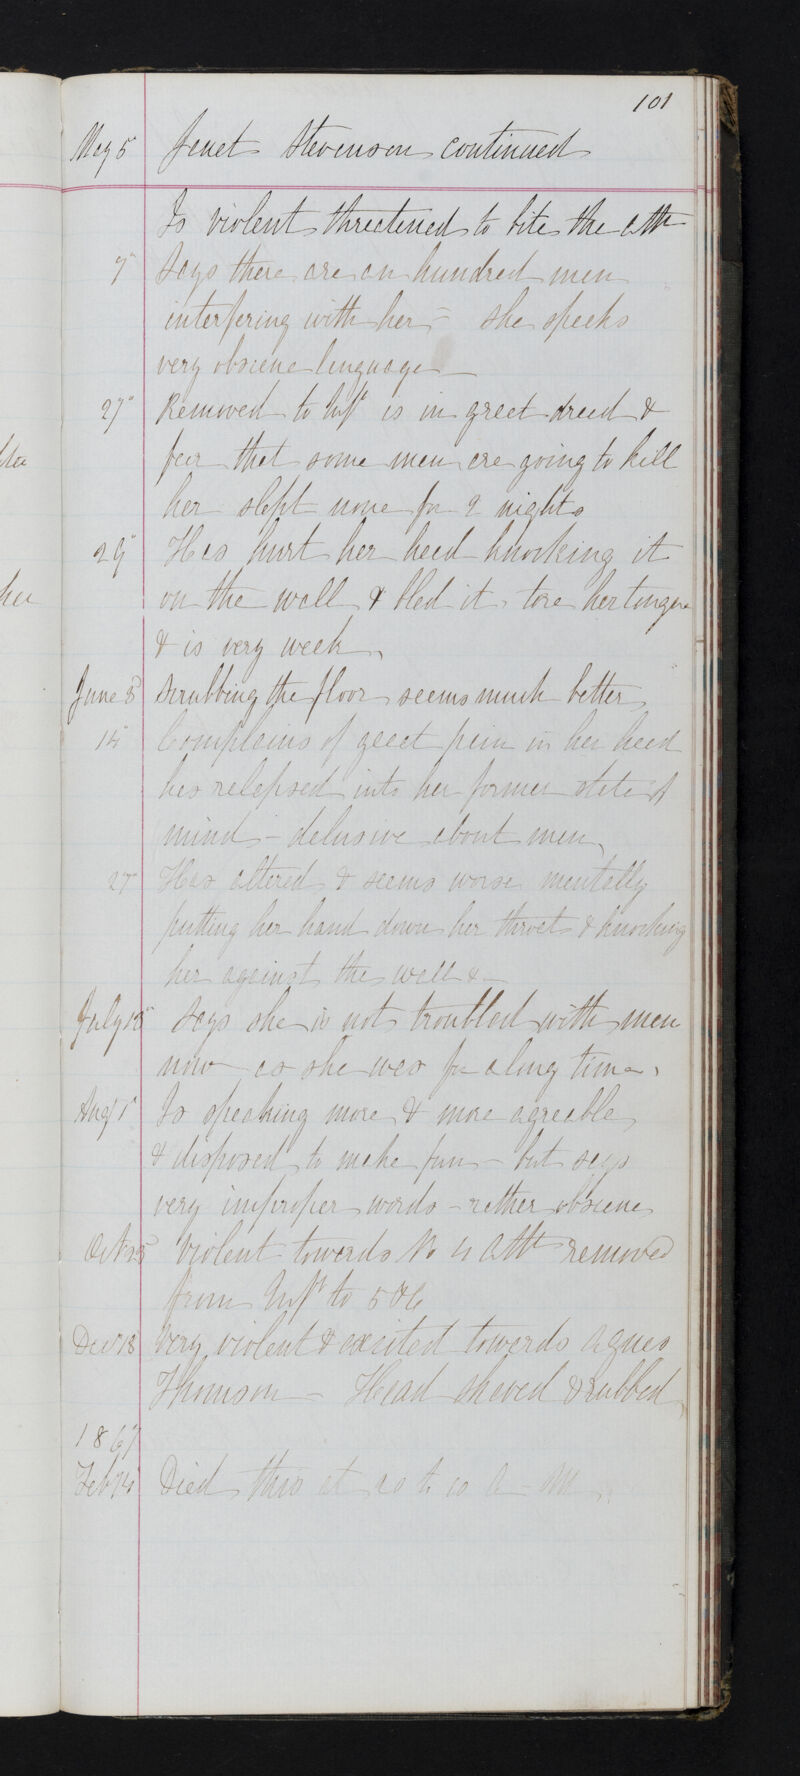 101
May 5" Jenet Stevenson continued
Is violent threatened to bite the att
7" Says there are an hundred men
interfering with her = she speaks
very obscene language
27" Removed to Infy is in great dread &
fear that some men are going to kill
her slept none for 2 nights
29" Has hurt her head knocking it
on the wall & bled it. tore her tongue
& is very weak
June 3" Scrubbing the floor seems much better
14" Complains of great pain in her head
has relapsed into her former state of
mind - delusive about men
27" Has altered & seems worse mentally
putting her hand down her throat & knocking
her against the wall &
July 18" Says she is not troubled with men
now as she was for a long time.
Augt 1" Is speaking more & more agreable
& disposed to make fun - but says
very improper words - rather obscene
Oct 25" Violent towards No 4 Attt removed
from Infy to 5 &6
Decr 18 Very violent & excited towards Agnes
Thomson - Head shaved & rubbed
1867
Feby 14" Died this at 20 to 10 A-M
ble
her